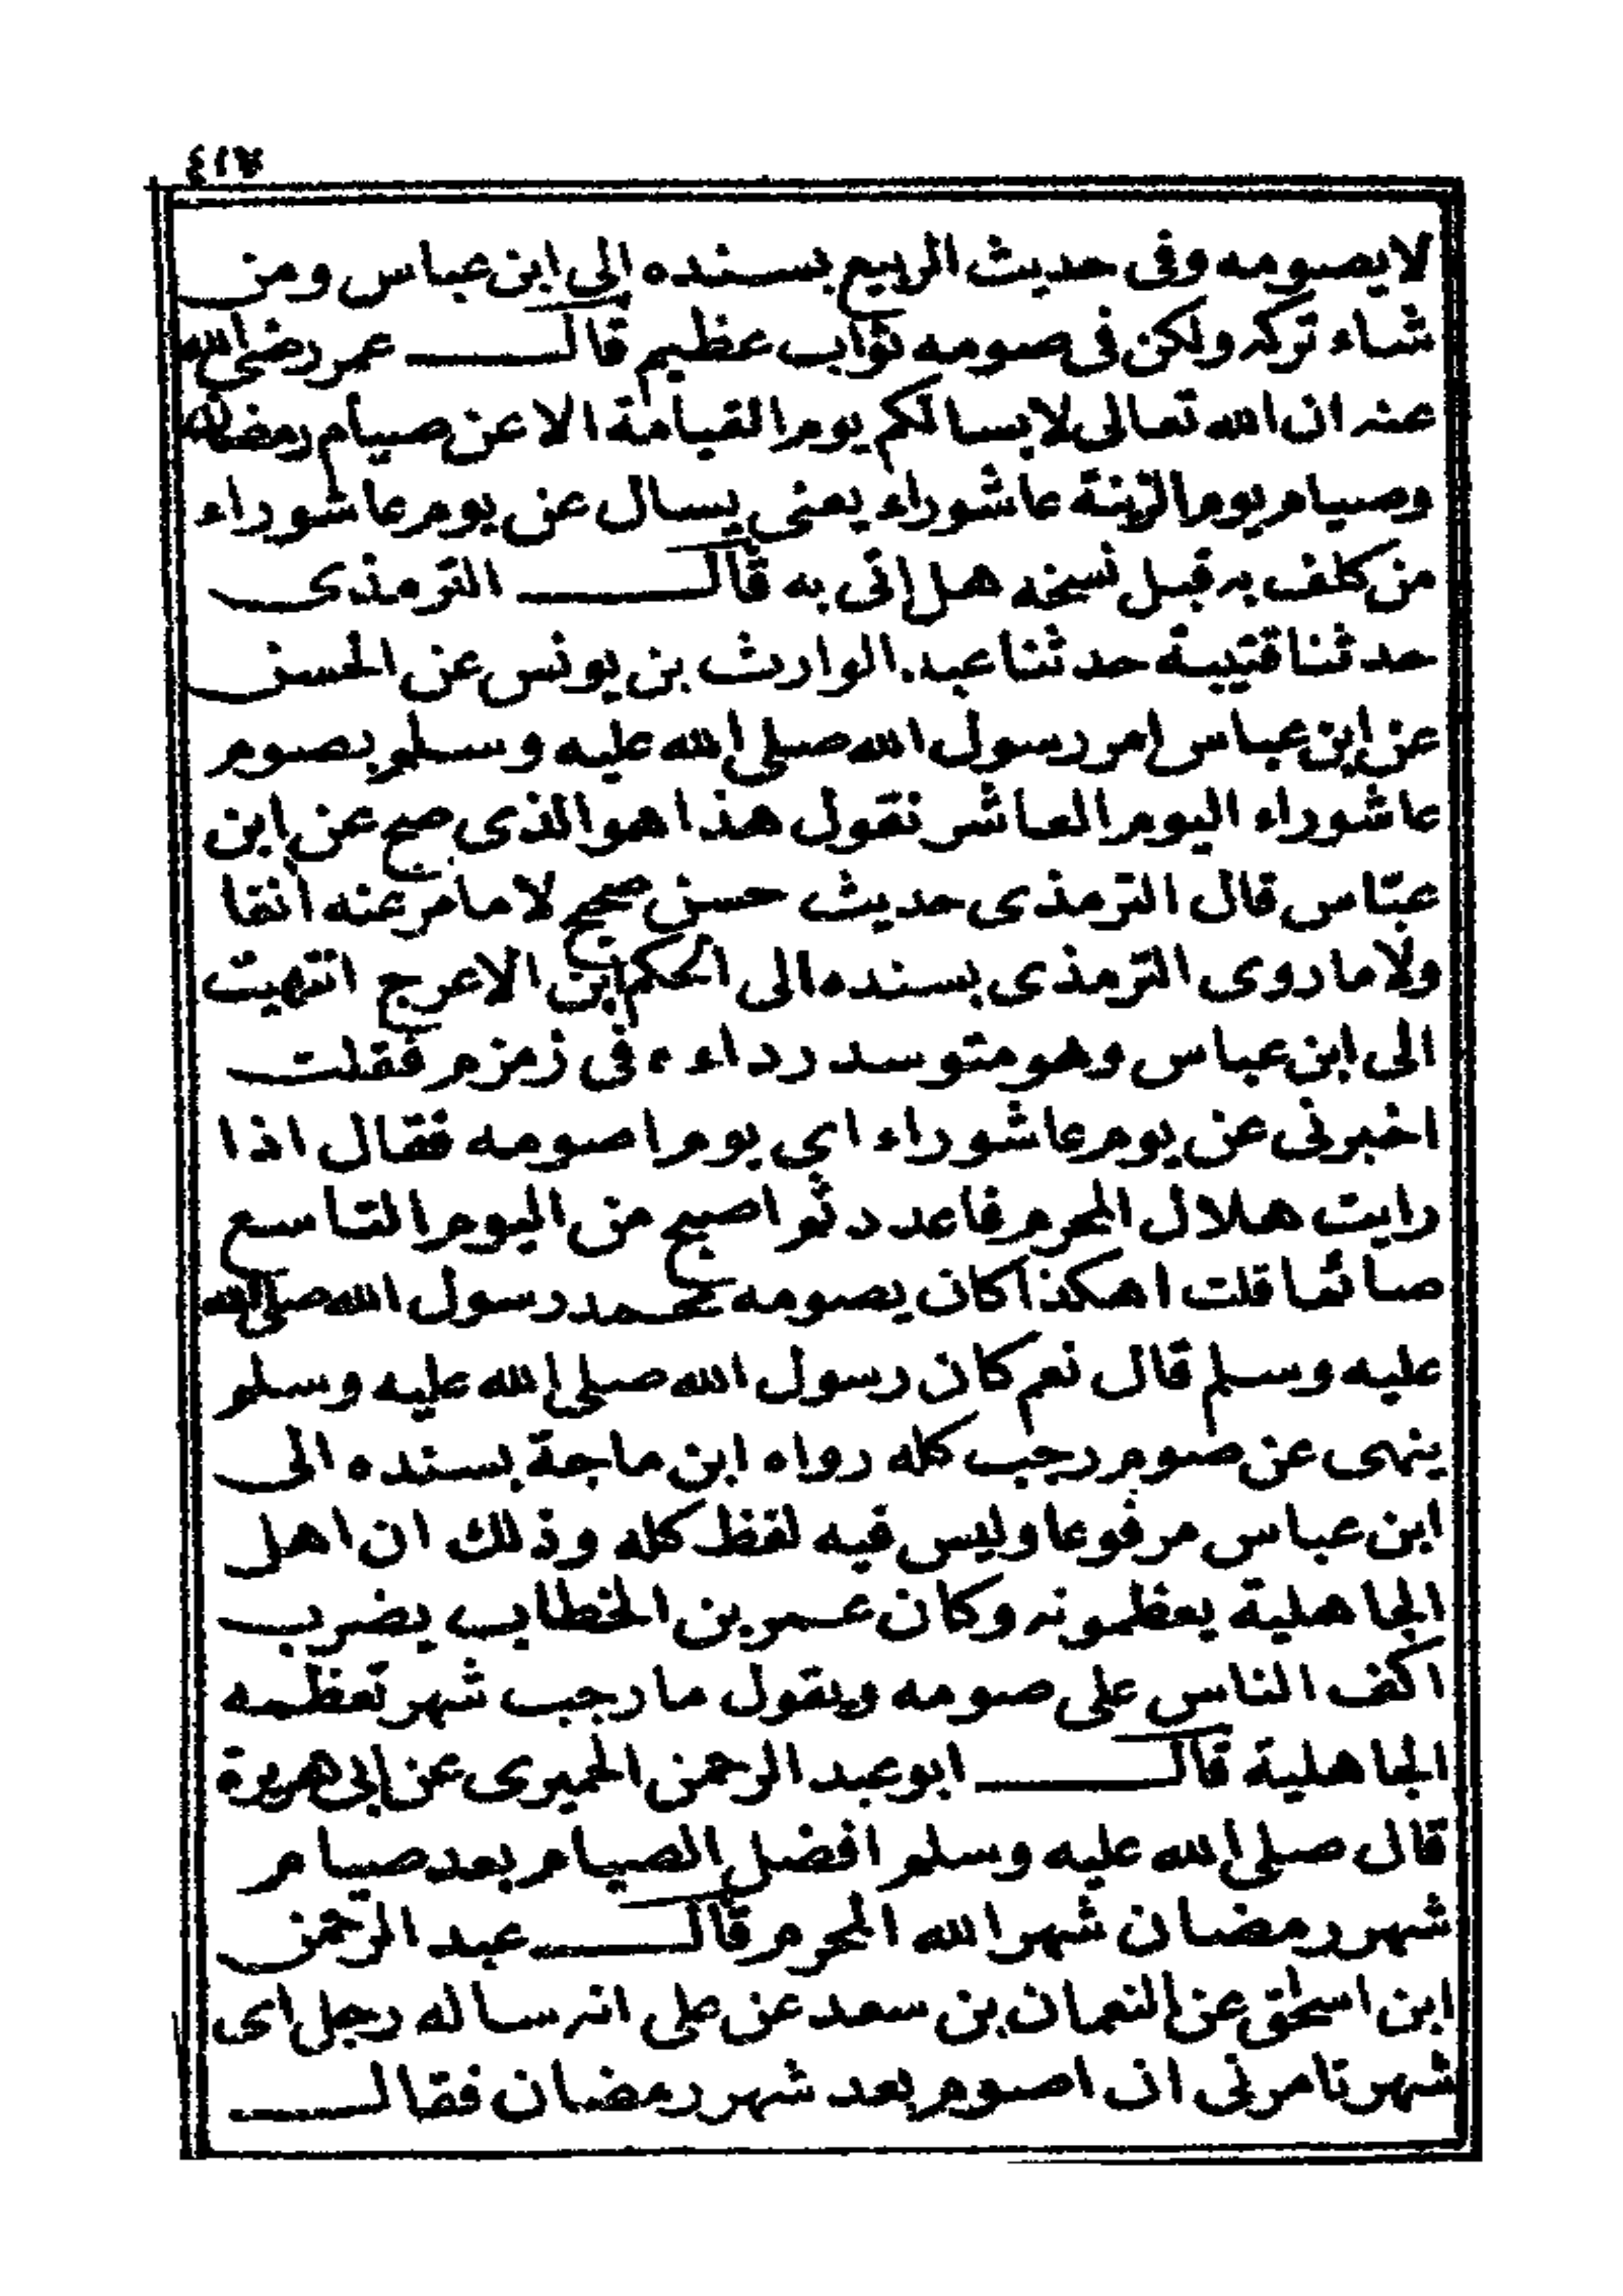 ٤١٧
لا يصومه وفى حديث الربيع بسنده الى ابن عباس ومن
شاء تركه ولكن فى صومه ثواب عظيم قال عمر رضى الله
عنه ان الله تعالى لا يسالكم يوم القيامة الا عن صيام رمضان
وصيام يوم الزينة عاشوراء يعنى يسال عن يوم عاشوراء
من كلف به قبل نسخه هل اتى به قال الترمذى
حدثنا قتيبة حدثنا عبد الوارث بن يونس عن الحسن
عن ابن عباس امر رسول الله صلى الله عليه وسلم بصوم
عاشوراء اليوم العاشر نقول هذا هو الذى صح عن ابن
عبّاس قال الترمذى حديث حسن صحيح لا ما مر عنه انفا
ولا ما روى الترمذى بسنده الى الحكم ابن الاعرج انتهيت
الى ابن عباس وهو متوسد رداءه فى زمزم فقلت
اخبرنى عن يوم عاشوراء اى يوم اصومه فقال اذا
رايت هلال المحرم فاعدد ثم اصبح من اليوم التاسع
صائما قلت اهكذا كان يصومه محمد رسول الله صلى الله
عليه وسلم قال نعم كان رسول الله صلى الله عليه وسلم
ينهى عن صوم رجب كله رواه ابن ماجة بسنده الى
ابن عباس مرفوعا وليس فيه لفظ كله وذلك ان اهل
الجاهلية يعظمونه وكان عمر بن الخطاب يضرب
اكف الناس على صومه ويقول ما رجب شهر تعظمه
الجاهلية قال ابو عبد الرحمن الحميرى عن ابى هريرة
قال صلى الله عليه وسلم افضل الصيام بعد صيام
شهر رمضان شهر الله المحرم قال عبد الرحمن
ابن اسحٰق عن النعمان بن سعد عن على انه ساله رجل اى
شهر تامرنى ان اصوم بعد شهر رمضان فقال